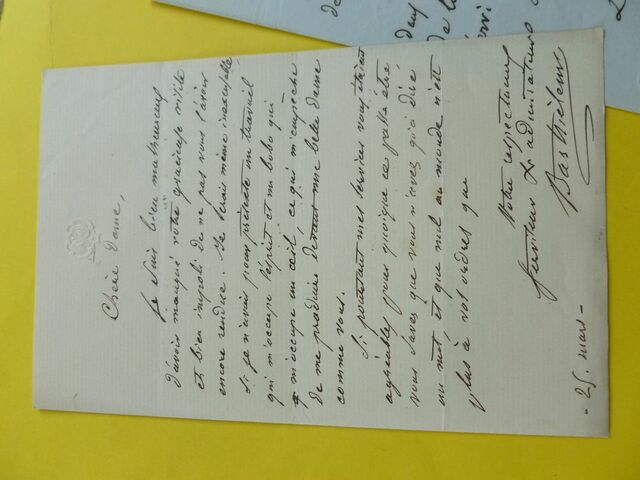 Chère Dame,
Je suis bien malheureux
d'avoir manqué votre gracieuse visite
et bien impoli de ne pas vous l'avoir
encore rendue. Je serais même inexcusable
si je n'avais pour prétexte un travail
qui m'occupe l'esprit et un bobo qui
m'occupe un œil, ce qui m'empêche
de me produire devant une belle dame
comme vous.
Si pourtant mes services vous étaient
agréables pour quoique ce puisse être
vous savez que vous n'avez qu'à dire
un mot, et que nul au monde n'est
plus à vos ordres que
Votre respectueux
serviteur & admirateur
- 25. mars -